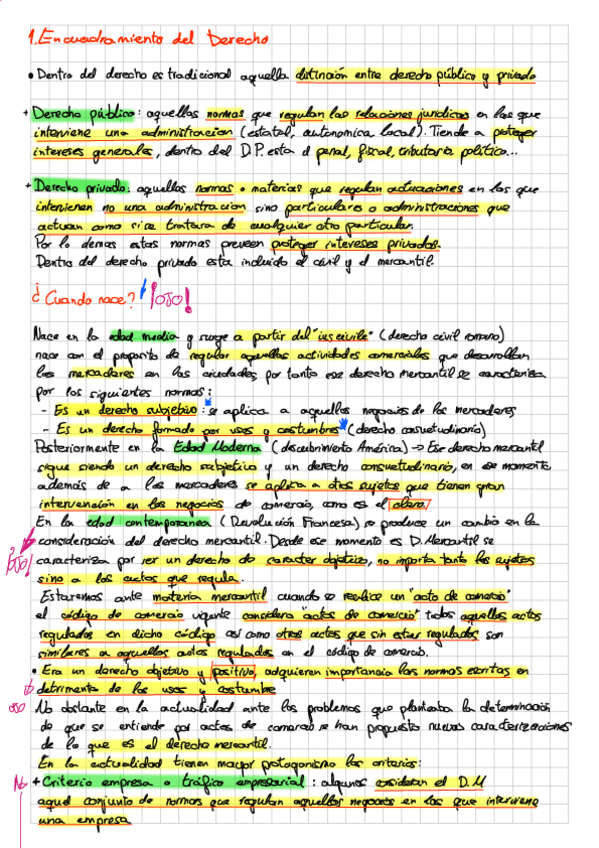 1. Encuadramiento del Derecho
• Dentro del derecho es tradicional aquella distinción entre derecho público y privado
+ Derecho público: aquellas normas que regulan las relaciones jurídicas en las que
interviene una administración (estatal, autonomica local). Tiende a proteger
intereses generales, dentro del D.P. esta el penal, fiscal, tributario politico...
+ Derecho privado: aquellas normas o materias que regulan actuaciones en las que
intervienen no una administración sino particulares o administraciones que
actuan como si se tratara de cualquier otro particular.
Por lo demas estas normas preveen proteger intereses privados.
Dentro del derecho privado esta incluido el civil y el mercantil.
¿Cuando nace? ¡OJO!
Nace en la edad media y surge a partir del "ius civile" (derecho civil romano)
nace con el proposito de regular aquellas actividades comerciales que desarrollan
los mercaderes en las ciudades, por tanto ese derecho mercantil se caracteriza
por las siguientes normas:
- Es un derecho subjetivo: se aplica a aquellos negocios de los mercaderes
- Es un derecho formado por usos y costumbres (derecho consuetudinario)
Posteriormente en la Edad Moderna (descubrimiento América) → Ese derecho mercantil
sigue siendo un derecho subjetivo y un derecho consuetudinario, en ese momento
además de a los mercaderes se aplica a otros sujetos que tienen gran
intervención en los negocios de comercio, como es el
En la edad contemporanea (Revolución Francesa) se produce un cambio en la
consideración del derecho mercantil. Desde ese momento es D. Mercantil se
¡OJO! caracteriza por ser un derecho de caracter objetivo, no importa tanto los sujetos
sino a los actos que regula.
Estaremos ante materia mercantil cuando se realice un "acto de comercio"
el código de comercio vigente considera "actos de comercio" todos aquellos actos
regulados en dicho código así como otros actos que sin estar regulados son
similares a aquellos actos regulados en el código de comercio.
• Era un derecho objetivo y positivo, adquieren importancia las normas escritas en
detrimento de los usos y costumbre
OJO No obstante en la actualidad ante los problemas que planteaba la determinación
de que se entiende por actos de comercio se han propuesto nuevas caracterizaciones
de lo que es el derecho mercantil.
En la actualidad tienen mayor protagonismo los criterios:
+ Criterio empresa o tráfico empresarial: algunos consideran el D.M
aquel conjunto de normas que regulan aquellos negocios en los que interviene
una empresa